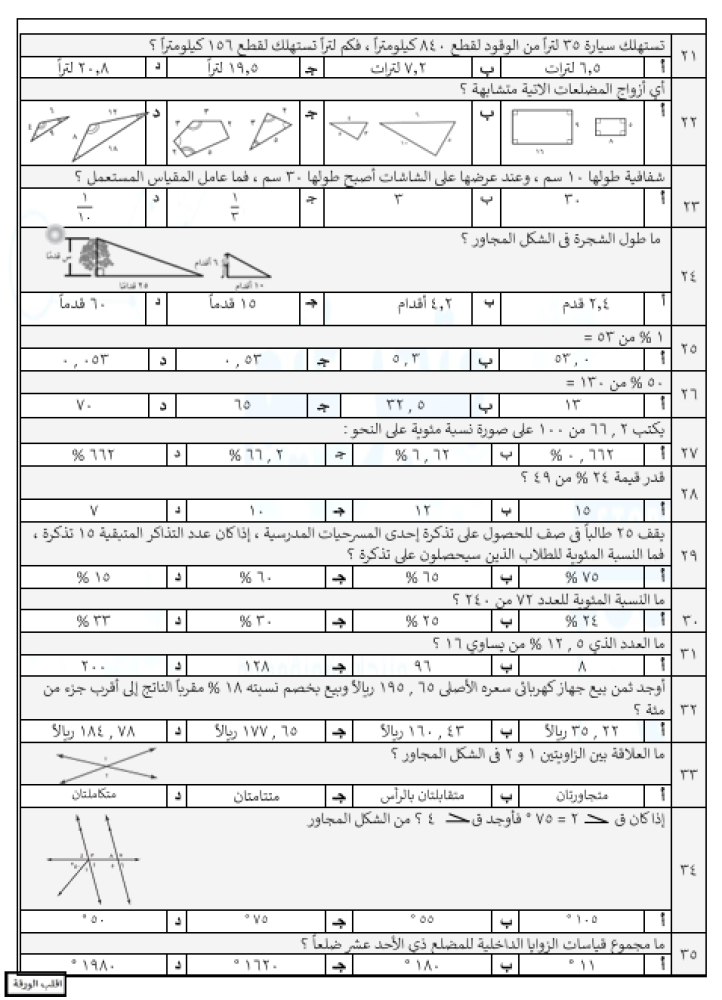 ٢١ تستهلك سيارة ٣٥ لتراً من الوقود لقطع ٨٤٠ كيلومتراً ، فكم لتراً تستهلك لقطع ١٥٦ كيلومتراً ؟
أ ٦,٥ لترات ب ٧,٢ لترات جـ ١٩,٥ لتراً د ٢٠,٨ لتراً
٢٢ أي أزواج المضلعات الاتية متشابهة ؟
أ ب جـ د
٢٣ شفافية طولها ١٠ سم ، وعند عرضها على الشاشات أصبح طولها ٣٠ سم ، فما عامل المقياس المستعمل ؟
أ ٣٠ ب ٣ جـ ١/٣ د ١/١٠
٢٤ ما طول الشجرة فى الشكل المجاور ؟
س قدمًا ٢٥ قدمًا ٦ أقدام ١٠ أقدام
أ ٢,٤ قدم ب ٤,٢ أقدام جـ ١٥ قدماً د ٦٠ قدماً
٢٥ ١ % من ٥٣ =
أ ٥٣,٠ ب ٥,٣ جـ ٠,٥٣ د ٠,٠٥٣
٢٦ ٥٠ % من ١٣٠ =
أ ١٣ ب ٣٢,٥ جـ ٦٥ د ٧٠
٢٧ يكتب ٦٦,٢ من ١٠٠ على صورة نسبة مئوية على النحو :
أ ٠,٦٦٢ % ب ٦,٦٢ % جـ ٦٦,٢ % د ٦٦٢ %
٢٨ قدر قيمة ٢٤ % من ٤٩ ؟
أ ١٥ ب ١٢ جـ ١٠ د ٧
٢٩ يقف ٢٥ طالباً فى صف للحصول على تذكرة إحدى المسرحيات المدرسية ، إذا كان عدد التذاكر المتبقية ١٥ تذكرة ،
فما النسبة المئوية للطلاب الذين سيحصلون على تذكرة ؟
أ ٧٥ % ب ٦٥ % جـ ٦٠ % د ١٥ %
٣٠ ما النسبة المئوية للعدد ٧٢ من ٢٤٠ ؟
أ ٢٤ % ب ٢٥ % جـ ٣٠ % د ٣٣ %
٣١ ما العدد الذي ١٢,٥ % من يساوي ١٦ ؟
أ ٨ ب ٩٦ جـ ١٢٨ د ٢٠٠
٣٢ أوجد ثمن بيع جهاز كهربائى سعره الأصلى ١٩٥,٦٥ ريالاً وبيع بخصم نسبته ١٨ % مقرباً الناتج إلى أقرب جزء من
مئة ؟
أ ٣٥,٢٢ ريالاً ب ١٦٠,٤٣ ريالاً جـ ١٧٧,٦٥ ريالاً د ١٨٤,٧٨ ريالاً
٣٣ ما العلاقة بين الزاويتين ١ و ٢ فى الشكل المجاور ؟
أ متجاورتان ب متقابلتان بالرأس جـ متتامتان د متكاملتان
٣٤ إذا كان ق ∠ ٢ = ٧٥ ° فأوجد ق ∠ ٤ ؟ من الشكل المجاور
أ ١٠٥ ° ب ٥٥ ° جـ ٧٥ ° د ٥٠ °
٣٥ ما مجموع قياسات الزوايا الداخلية للمضلع ذي الأحد عشر ضلعاً ؟
أ ١١ ° ب ١٨٠ ° جـ ١٦٢٠ ° د ١٩٨٠ °
اقلب الورقة